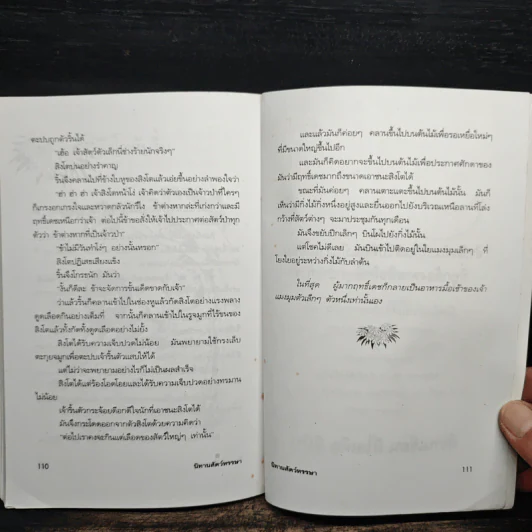 ตะปบถูกตัวริ้นได้
"เฮ้อ เจ้าสัตว์ตัวเล็กนี่ช่างร้ายนักจริงๆ"
สิงโตบ่นอย่างรำคาญ
ริ้นจึงคลานไปที่ข้างใบหูของสิงโตแล้วเอ่ยขึ้นอย่างลำพองใจว่า
"ฮ่า ฮ่า ฮ่า เจ้าสิงโตหน้าโง่ เจ้าคิดว่าตัวเองเป็นเจ้าป่าที่ใครๆ
ก็เกรงอกเกรงใจและหวาดกลัวนักรึไง ข้าต่างหากล่ะที่เก่งกว่าและมี
ฤทธิ์เดชเหนือกว่าเจ้า ต่อไปนี้ข้าขอสั่งให้เจ้าไปประกาศต่อสัตว์ป่าทุก
ตัวว่า ข้าต่างหากที่เป็นเจ้าป่า"
"ข้าไม่มีวันทำโง่ๆ อย่างนั้นหรอก"
สิงโตปฏิเสธเสียงแข็ง
ริ้นจึงโกรธนัก มันว่า
"งั้นก็ดีละ ข้าจะจัดการขั้นเด็ดขาดกับเจ้า"
ว่าแล้วริ้นก็คลานเข้าไปในช่องหูแล้วกัดสิงโตอย่างแรงพลาง
ดูดเลือดกินอย่างเต็มที่ จากนั้นก็คลานเข้าไปในรูจมูกที่ไร้ขนของ
สิงโตแล้วทั้งกัดทั้งดูดเลือดกินอย่างไม่ยั้ง
สิงโตได้รับความเจ็บปวดไม่น้อย มันพยายามใช้กรงเล็บ
ตะกุยจมูกเพื่อตะปบเจ้าริ้นตัวแสบให้ได้
แต่ไม่ว่าจะพยายามอย่างไรก็ไม่เป็นผลสำเร็จ
สิงโตได้แต่ร้องโอดโอยและได้รับความเจ็บปวดอย่างทรมาน
ไม่น้อย
เจ้าริ้นตัวกระจ้อยดีอกดีใจนักที่เอาชนะสิงโตได้
มันจึงกระโดดออกจากตัวสิงโตด้วยความคิดว่า
"ต่อไปเราคงจะกินแต่เลือดของสัตว์ใหญ่ๆ เท่านั้น"
110
นิทานสัตว์หรรษา
และแล้วมันก็ค่อยๆ คลานขึ้นไปบนต้นไม้เพื่อรอเหยื่อใหม่ๆ
ที่มีขนาดใหญ่ขึ้นไปอีก
และมันก็คิดอยากจะขึ้นไปบนต้นไม้เพื่อประกาศศักดาของ
มันว่ามีฤทธิ์เดชมากถึงขนาดเอาชนะสิงโตได้
ขณะที่มันค่อยๆ คลานเตาะแตะขึ้นไปบนต้นไม้นั้น มันก็
เห็นว่ามีกิ่งไม้กิ่งหนึ่งอยู่สูงและยื่นออกไปยังบริเวณเหนือลานที่โล่ง
กว้างที่สัตว์ต่างๆ จะมาประชุมกันทุกเดือน
มันจึงขยับปีกเล็กๆ บินโผไปยังกิ่งไม้นั้น
แต่โชคไม่ดีเลย มันบินเข้าไปติดอยู่ในใยแมงมุมเล็กๆ ที่
โยงใยอยู่ระหว่างกิ่งไม้กับลำต้น
ในที่สุด ผู้มากฤทธิ์เดชก็กลายเป็นอาหารมื้อเช้าของเจ้า
แมงมุมตัวเล็กๆ ตัวหนึ่งเท่านั้นเอง
นิทานสัตว์หรรษา
111